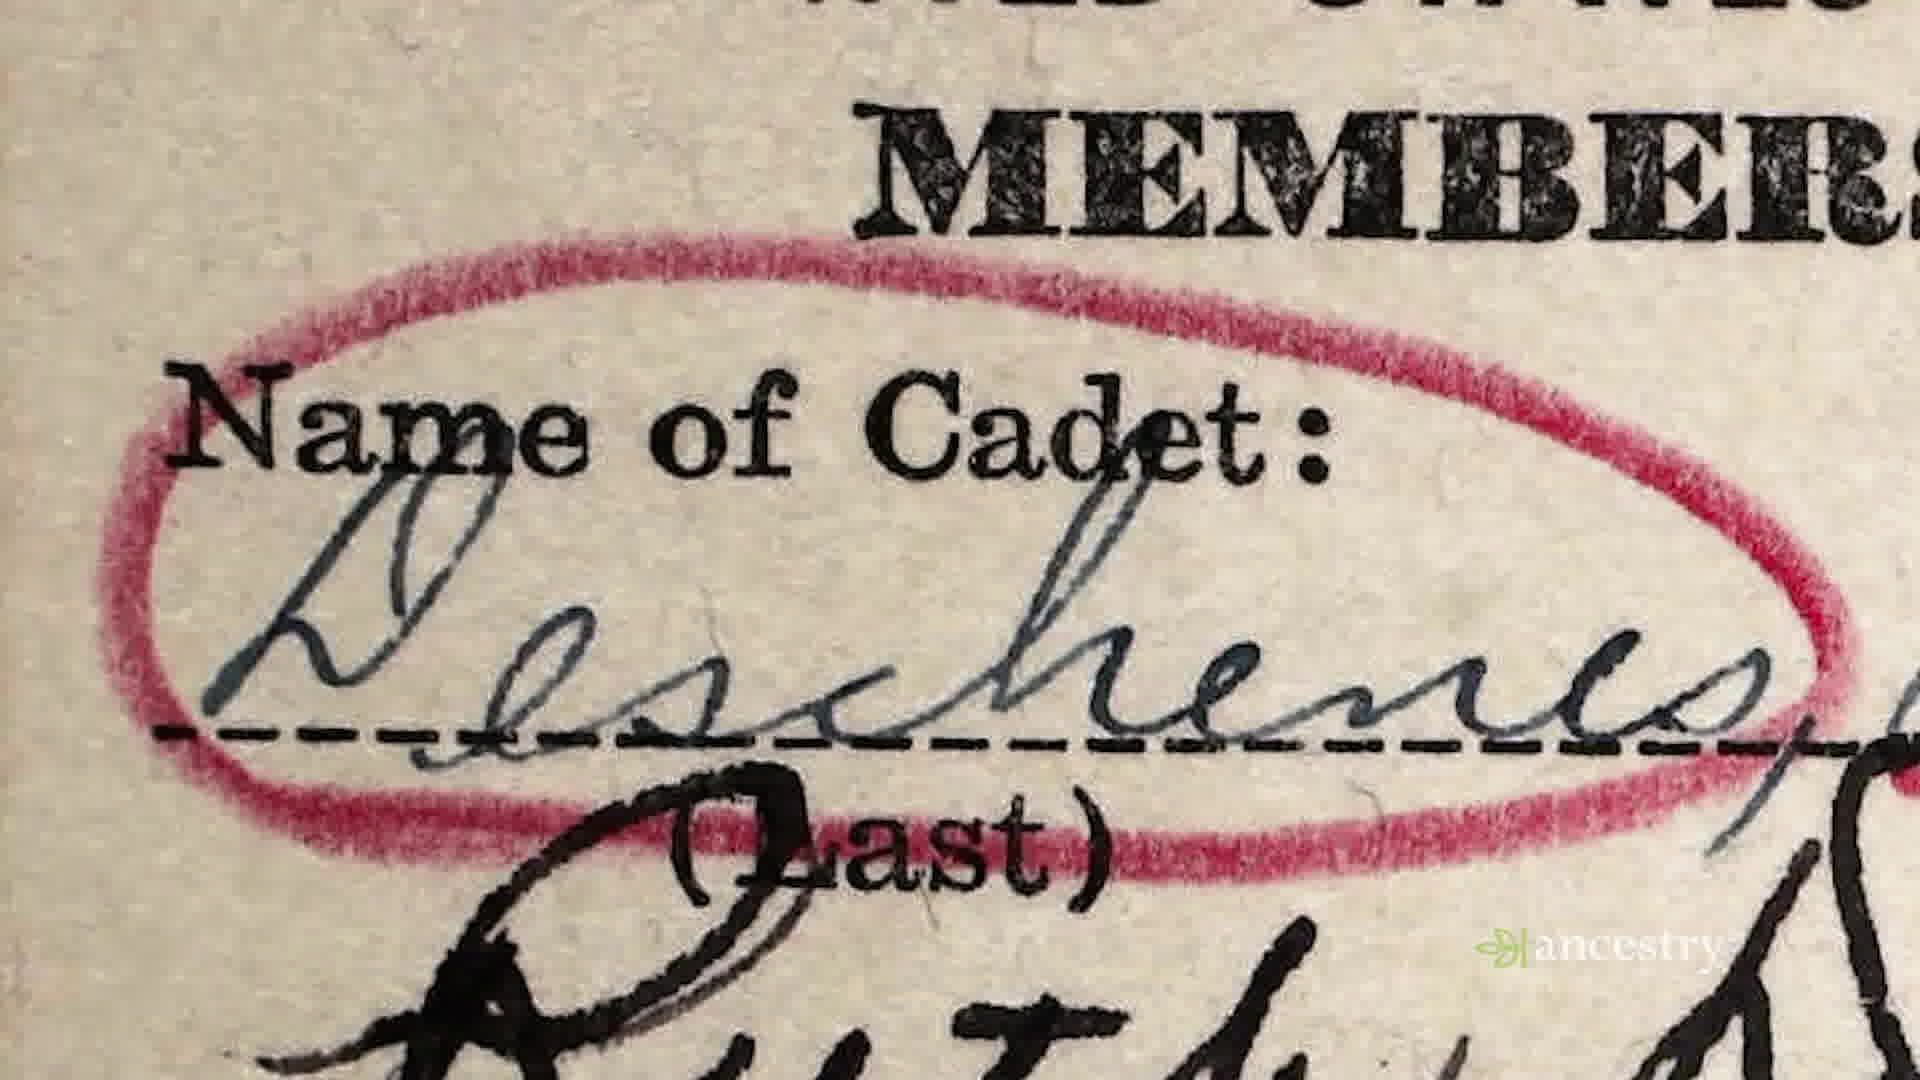 MEMBERS
Name of Cadet:
Deschenes,
(Last)
Ruth
ancestry